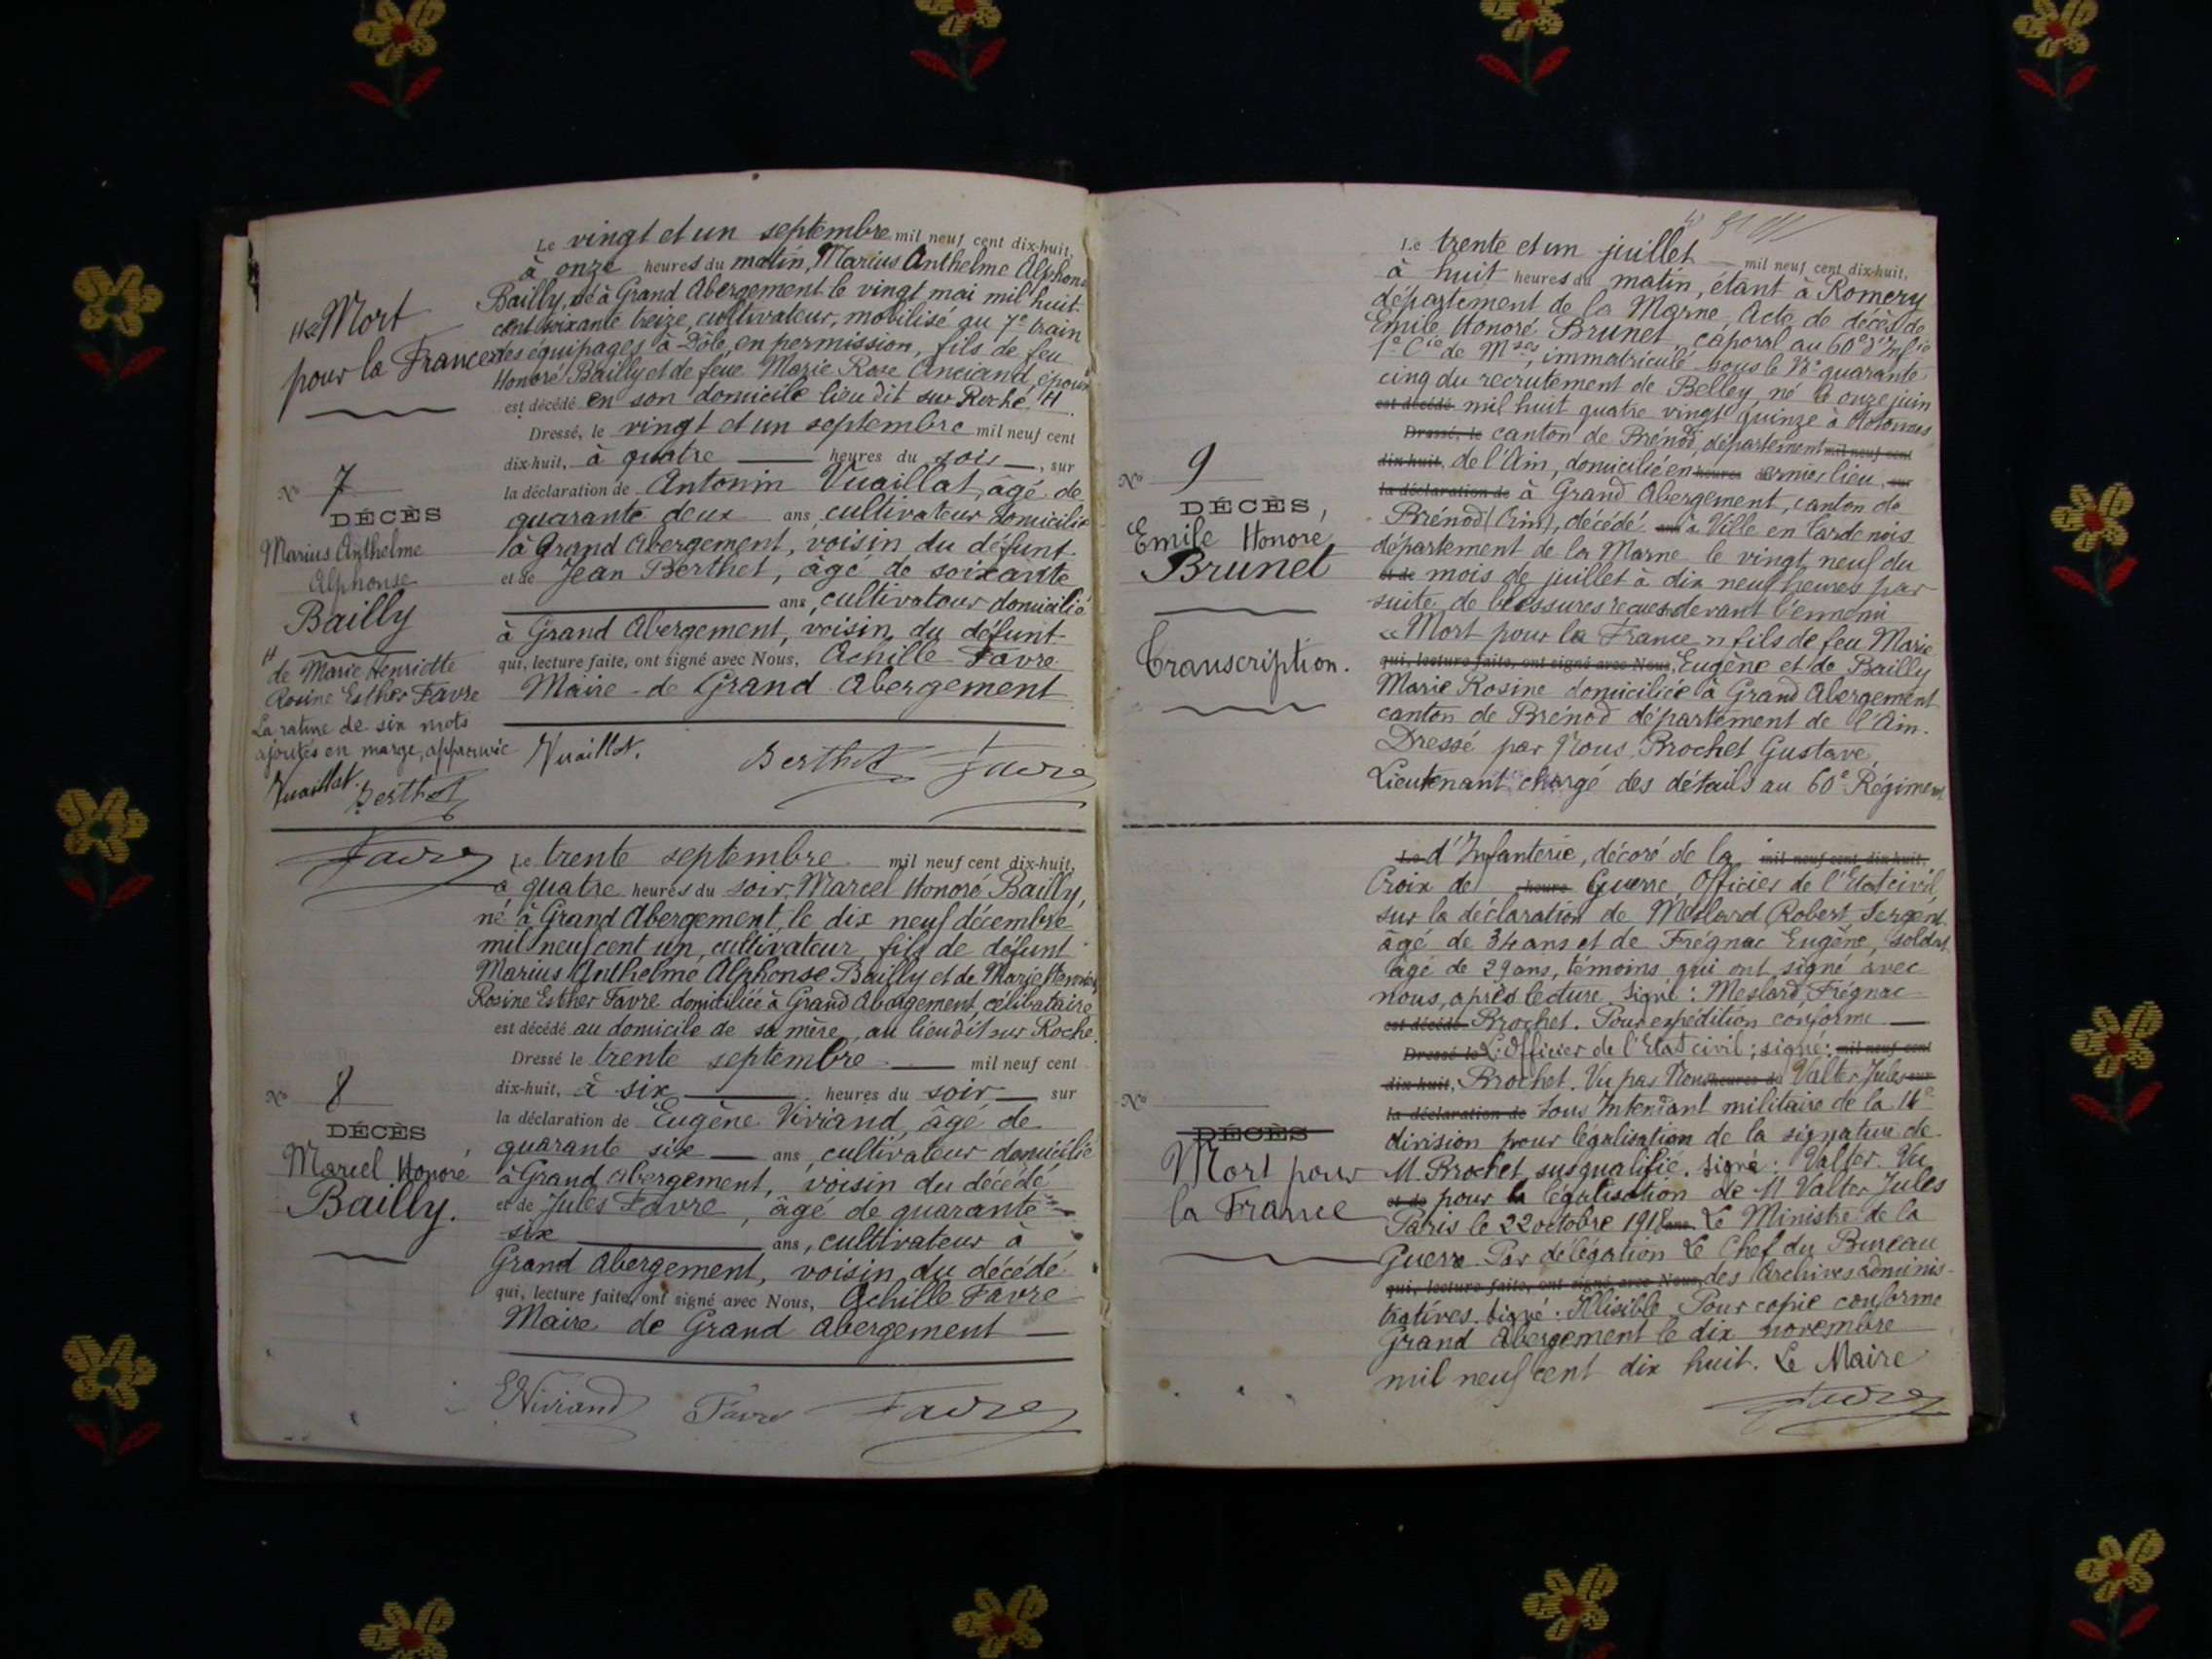 Le vingt et un septembre mil neuf cent dix-huit,
à onze heures du matin, Marius Anthelme Alphons
Bailly, né à Grand Abergement le vingt mai mil huit
cent soixante treize, cultivateur, mobilisé au 7e train
des équipages à Dôle, en permission, fils de feu
Honoré Bailly et de feue Marie Rose Anciand, époux
est décédé en son domicile lieu dit sur Roche H
Dressé, le vingt et un septembre mil neuf cent
dix-huit, à quatre heures du soir, sur
la déclaration de Antonin Vuaillat, âgé de
quarante deux ans, cultivateur domicilié
à Grand Abergement, voisin du défunt
et de Jean Berthet, âgé de soixante
ans, cultivateur domicilié
à Grand Abergement, voisin du défunt
qui, lecture faite, ont signé avec Nous, Achille Favre
Maire de Grand Abergement
Vuaillat. Berthet Favre
Mort
pour la France
No 7
DÉCÈS
Marius Anthelme
Alphonse
Bailly
H
de Marie Henriette
Rosine Esther Favre
La rature de six mots
ajoutés en marge, approuvée
Vuaillat.
Berthet
Favre
Le trente septembre mil neuf cent dix-huit,
à quatre heures du soir, Marcel Honoré Bailly,
né à Grand Abergement, le dix neuf décembre
mil neuf cent un, cultivateur, fils de défunt
Marius Anthelme Alphonse Bailly et de Marie Henriette
Rosine Esther Favre domiciliée à Grand Abergement, célibataire
est décédé au domicile de sa mère, au lieu dit sur Roche.
Dressé le trente septembre mil neuf cent
dix-huit, à six heures du soir sur
la déclaration de Eugène Viviand, âgé de
quarante six ans, cultivateur domicilié
à Grand Abergement, voisin du décédé
et de Jules Favre, âgé de quarante
six ans, cultivateur à
Grand Abergement, voisin du décédé
qui, lecture faite, ont signé avec Nous, Achille Favre
Maire de Grand Abergement
EViviand Favre Favre
No 8
DÉCÈS
Marcel Honoré
Bailly.
Le trente et un juillet mil neuf cent dix-huit,
à huit heures du matin, étant à Romery
département de la Marne, Acte de décès de
Emile Honoré Brunet, caporal au 60e d'Infie
1e Cie de Mses, immatriculé sous le No quarante
cinq du recrutement de Belley, né le onze juin
est décédé mil huit quatre vingt quinze à Hotonnes
Dressé, le canton de Brénod, département mil neuf cent
dix-huit, de l'Ain, domicilié en heures dernier lieu, sur
la déclaration de à Grand Abergement, canton de
Brénod (Ain), décédé ans à Ville en Tardenois
département de la Marne le vingt neuf du
et de mois de juillet à dix neuf heures par
suite de blessures reçues devant l'ennemi
« Mort pour la France » fils de feu Marie
qui, lecture faite, ont signé avec Nous, Eugène et de Bailly
Marie Rosine domiciliée à Grand Abergement
canton de Brénod département de l'Ain.
Dressé par Nous Brochet Gustave,
Lieutenant chargé des détails au 60e Régiment
No 9
DÉCÈS,
Emile Honoré
Brunet
Transcription.
Le d'Infanterie, décoré de la mil neuf cent dix-huit,
Croix de heure Guerre, Officier de l'Etat civil,
sur la déclaration de Meslard Robert, Sergent
âgé de 34 ans et de Frégnac Eugène, soldat
âgé de 29 ans, témoins qui ont signé avec
nous, après lecture. Signé : Meslard, Frégnac
est décédé Brochet. Pour expédition conforme
Dressé le L'Officier de l'Etat civil ; signé : mil neuf cent
dix-huit, Brochet. Vu par Nous heures du Valter Jules sur
la déclaration de Sous Intendant militaire de la 14e
division pour légalisation de la signature de
M. Brochet susqualifié. Signé : Valter. Vu
et de pour la légalisation de M Valter Jules
Paris le 22 octobre 1918 ans Le Ministre de la
Guerre. Par délégation Le Chef du Bureau
qui, lecture faite, ont signé avec Nous, des Archives adminis-
tratives. Signé : Illisible. Pour copie conforme
Grand Abergement le dix novembre
mil neuf cent dix huit. Le Maire
Favre
No
DÉCÈS
Mort pour
la France